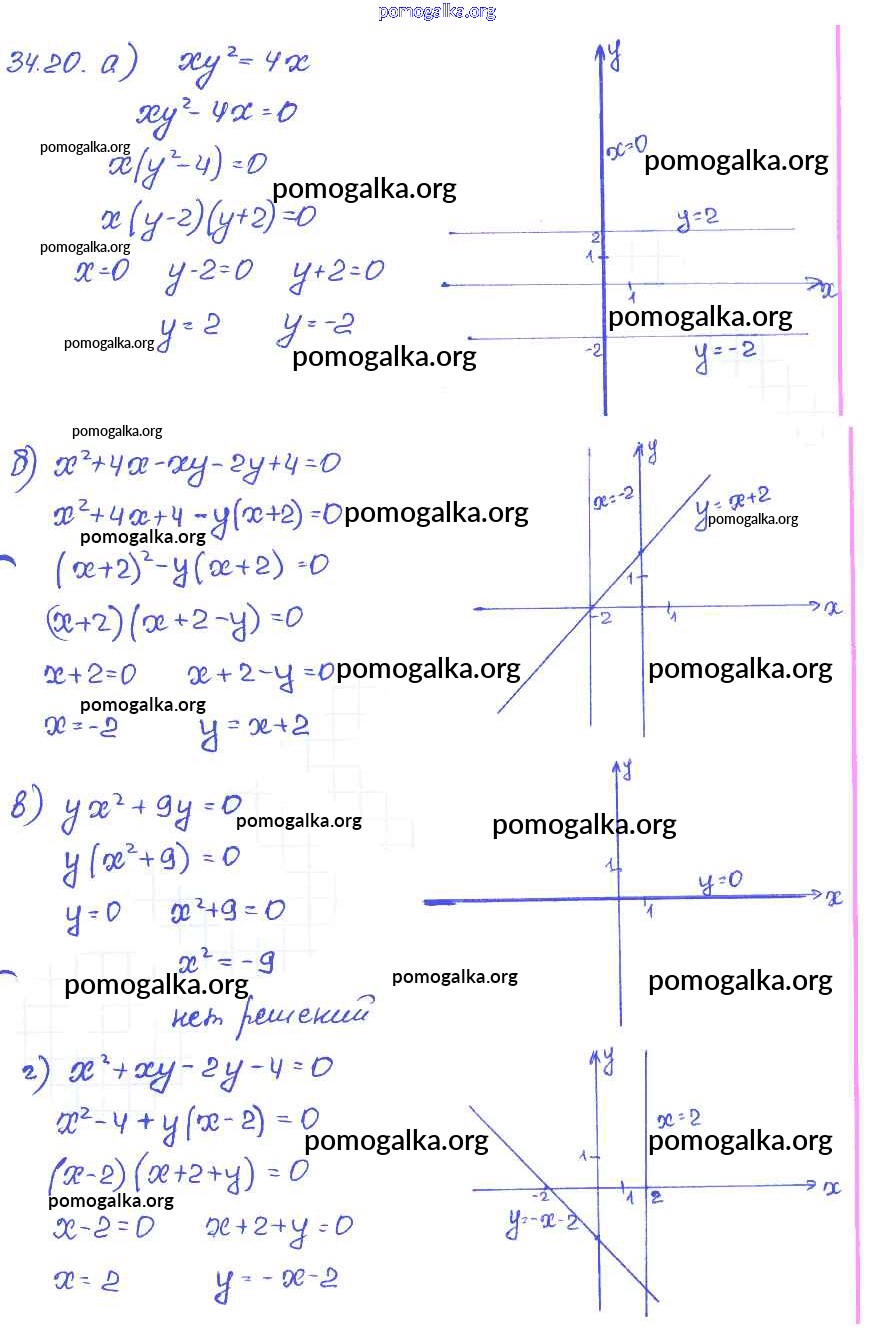 pomogalka.org
34.20. а) xy² = 4x
xy² - 4x = 0
pomogalka.org
x(y² - 4) = 0
pomogalka.org
x(y-2)(y+2) = 0
pomogalka.org
x=0 y-2=0 y+2=0
y = 2 y = -2
pomogalka.org
pomogalka.org
y
x=0
pomogalka.org
y=2
2
1
x
1
pomogalka.org
-2
y=-2
pomogalka.org
б) x²+4x-xy-2y+4=0
x²+4x+4-y(x+2)=0
pomogalka.org
pomogalka.org
(x+2)²-y(x+2)=0
(x+2)(x+2-y)=0
x+2=0 x+2-y=0
pomogalka.org
pomogalka.org
x=-2 y=x+2
y
x=-2
y=x+2
pomogalka.org
1
x
-2
1
pomogalka.org
в) yx²+9y=0
pomogalka.org
y(x²+9)=0
y=0 x²+9=0
x²=-9
pomogalka.org
pomogalka.org
нет решений
y
pomogalka.org
1
y=0
x
1
pomogalka.org
г) x²+xy-2y-4=0
x²-4+y(x-2)=0
pomogalka.org
(x-2)(x+2+y)=0
pomogalka.org
x-2=0 x+2+y=0
x=2 y=-x-2
y
x=2
pomogalka.org
1
x
-2
1 2
y=-x-2